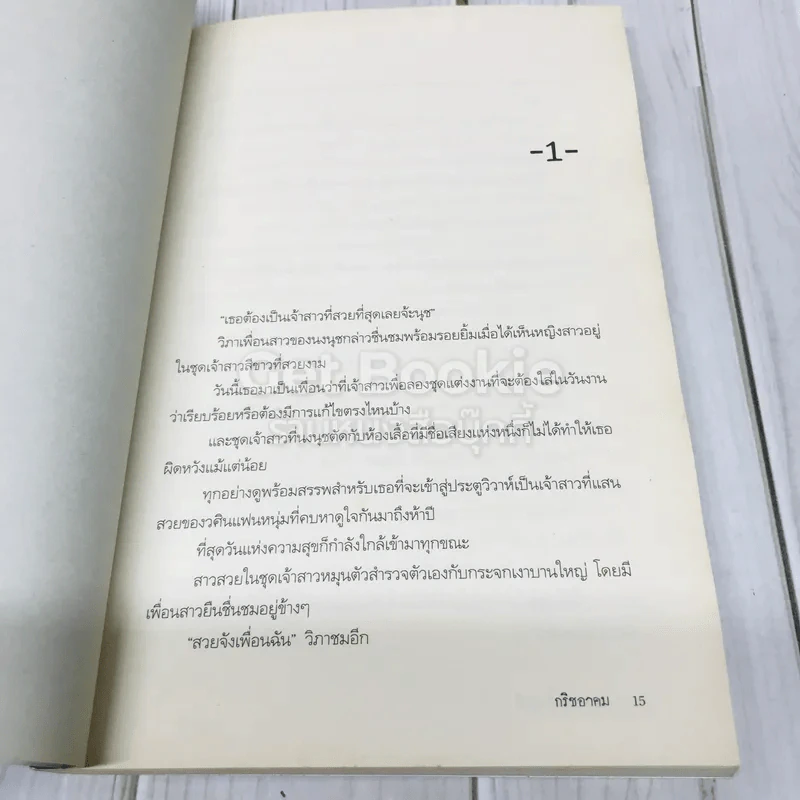 -1-
“เธอต้องเป็นเจ้าสาวที่สวยที่สุดเลยจ้ะนุช”
วิภาเพื่อนสาวของนงนุชกล่าวชื่นชมพร้อมรอยยิ้มเมื่อได้เห็นหญิงสาวอยู่
ในชุดเจ้าสาวสีขาวที่สวยงาม
Get Bookie
วันนี้เธอมาเป็นเพื่อนว่าที่เจ้าสาวเพื่อลองชุดแต่งงานที่จะต้องใส่ในวันงาน
ว่าเรียบร้อยหรือต้องมีการแก้ไขตรงไหนบ้าง
ร้านหนังสือบุ๊คกี้
และชุดเจ้าสาวที่นงนุชตัดกับห้องเสื้อที่มีชื่อเสียงแห่งหนึ่งก็ไม่ได้ทำให้เธอ
ผิดหวังแม้แต่น้อย
ทุกอย่างดูพร้อมสรรพสำหรับเธอที่จะเข้าสู่ประตูวิวาห์เป็นเจ้าสาวที่แสน
สวยของวศินแฟนหนุ่มที่คบหาดูใจกันมาถึงห้าปี
ที่สุดวันแห่งความสุขก็กำลังใกล้เข้ามาทุกขณะ
สาวสวยในชุดเจ้าสาวหมุนตัวสำรวจตัวเองกับกระจกเงาบานใหญ่ โดยมี
เพื่อนสาวยืนชื่นชมอยู่ข้างๆ
“สวยจังเพื่อนฉัน” วิภาชมอีก
กริชอาคม 15